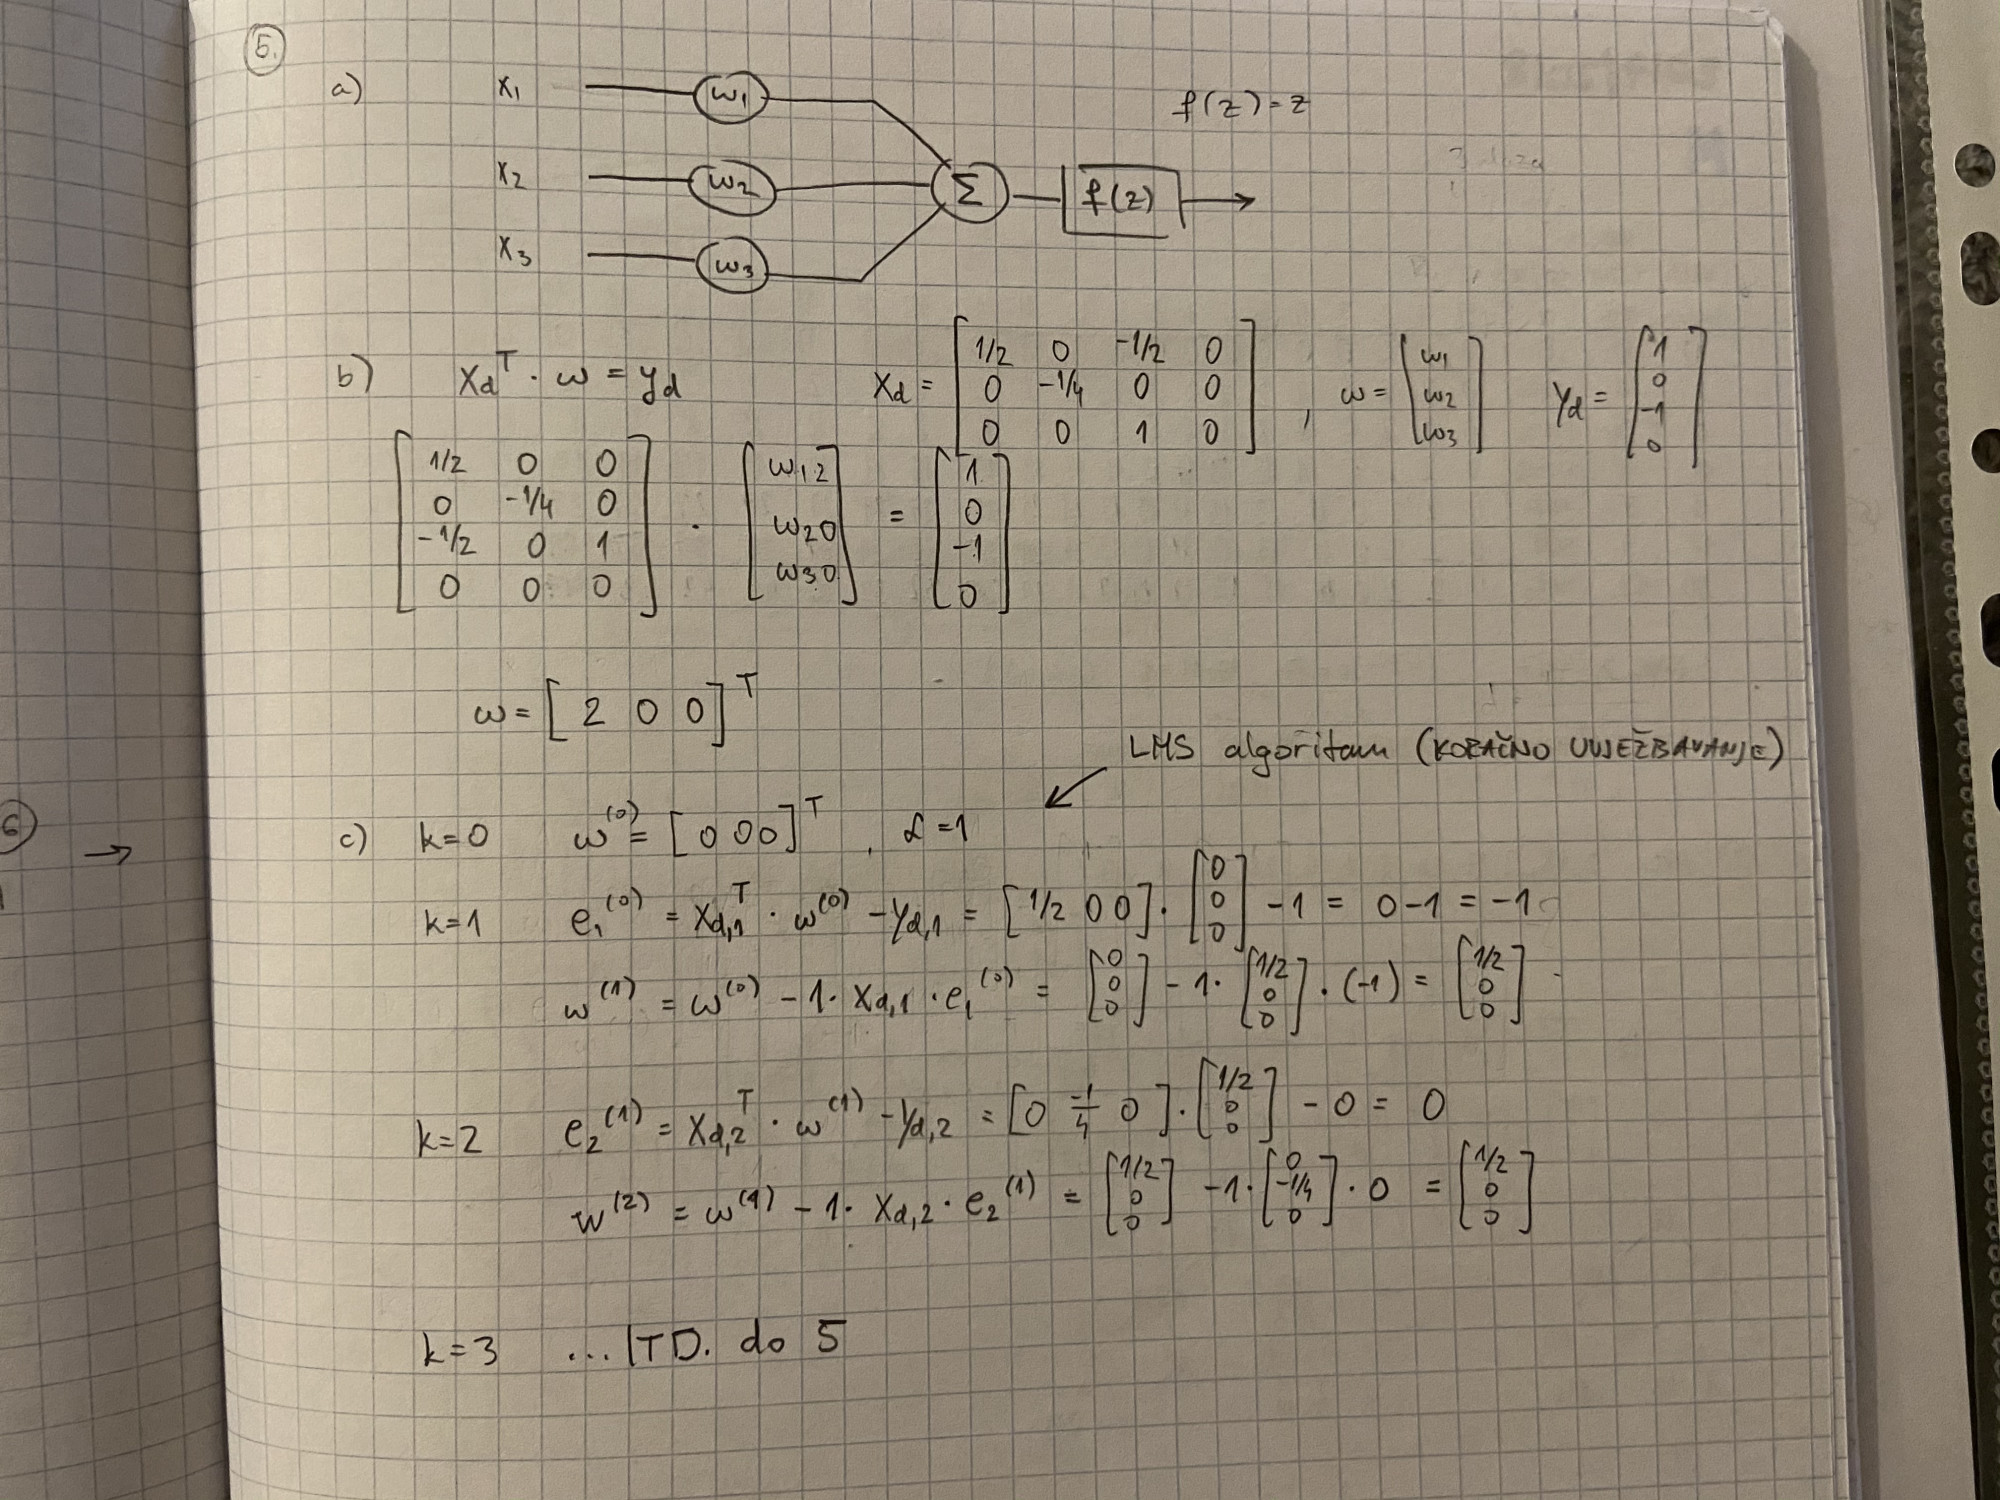 5.
a) x₁ w₁ f(z)=z
x₂ w₂ Σ f(z)
x₃ w₃
b) x_d^T · w = y_d   x_d = [1/2 0 -1/2 0; 0 -1/4 0 0; 0 0 1 0] , w = [w₁; w₂; w₃]   y_d = [1; 0; -1; 0]
[1/2 0 0; 0 -1/4 0; -1/2 0 1; 0 0 0] · [w₁ 2; w₂ 0; w₃ 0] = [1; 0; -1; 0]
w = [2 0 0]^T
LMS algoritam (KORAČNO UVJEŽBAVANJE)
6
→
c) k=0   w^(0) = [0 0 0]^T , α=1
k=1   e₁^(0) = x_d,1^T · w^(0) - y_d,1 = [1/2 0 0] · [0; 0; 0] - 1 = 0-1 = -1
w^(1) = w^(0) - 1· x_d,1 · e₁^(0) = [0; 0; 0] - 1· [1/2; 0; 0] · (-1) = [1/2; 0; 0]
k=2   e₂^(1) = x_d,2^T · w^(1) - y_d,2 = [0 -1/4 0] · [1/2; 0; 0] - 0 = 0
w^(2) = w^(1) - 1· x_d,2 · e₂^(1) = [1/2; 0; 0] - 1· [0; -1/4; 0] · 0 = [1/2; 0; 0]
k=3   ...ITD. do 5